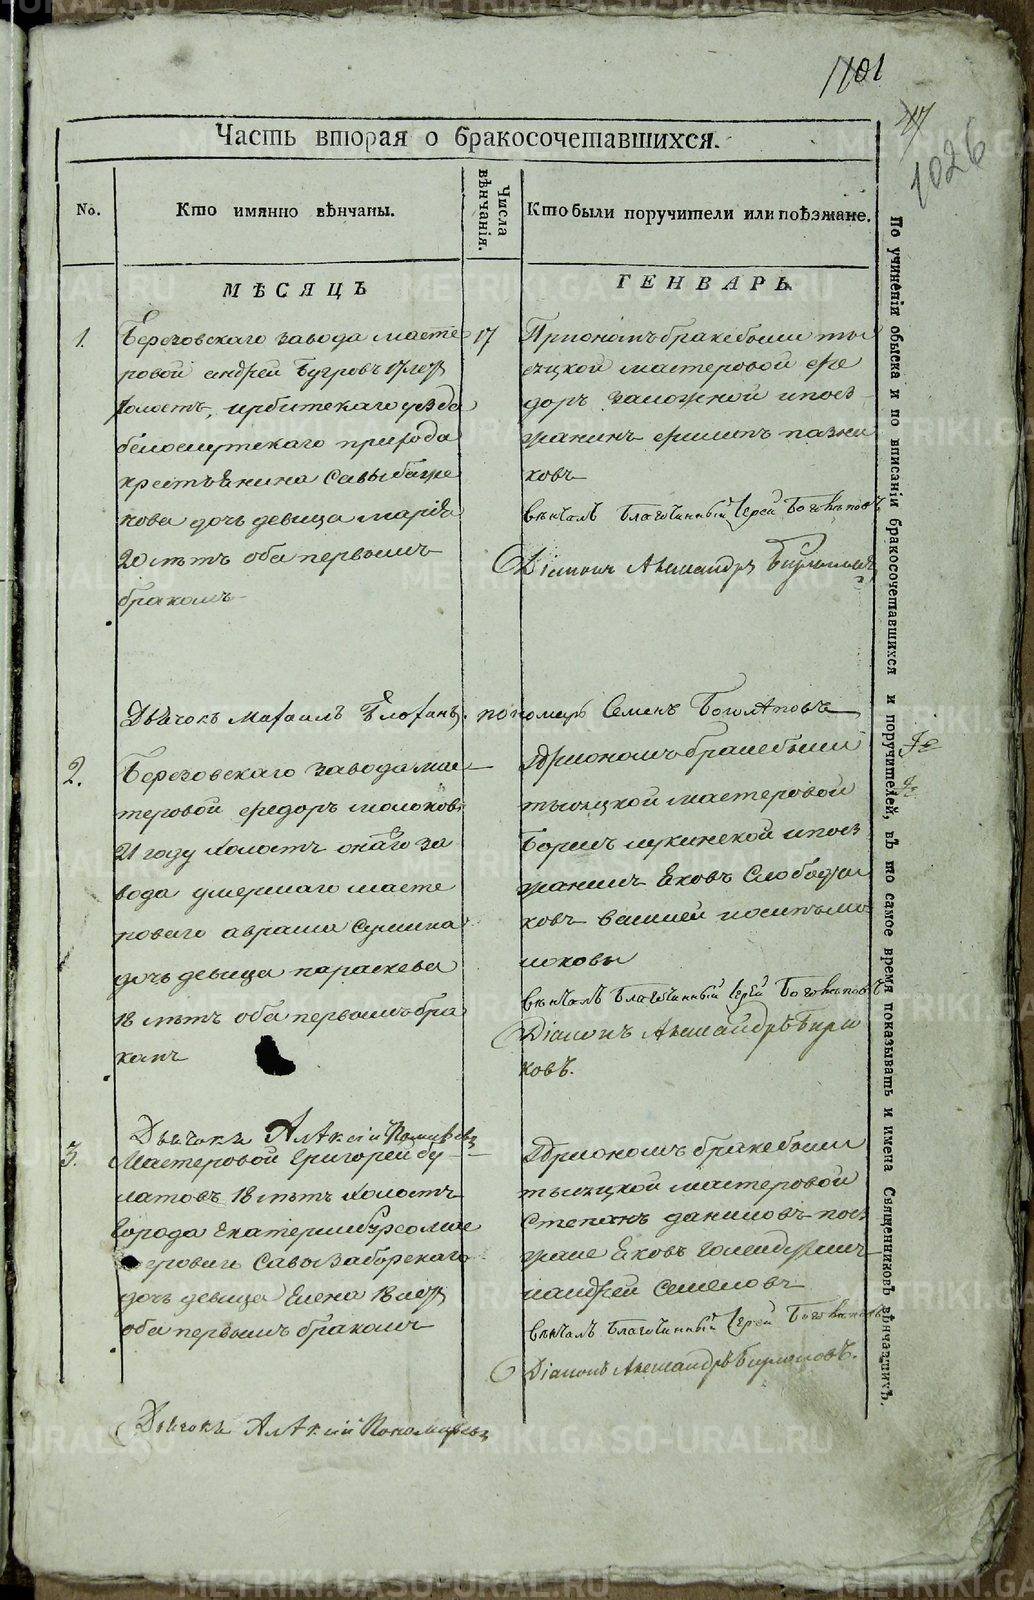 1101
1026
Часть вторая о бракосочетавшихся.
No.
Кто имянно вѣнчаны.
Числа вѣнчанія.
Кто были поручители или поѣзжане.
МѢСЯЦЪ
ГЕНВАРЬ
1.
Березовскаго завода масте
ровой андрей Бугровъ 19 лет
холостъ, ирбитскаго уезда
белослутскаго прихода
крестьЕнина Савы
кова дочь девица марѳа
20 летъ оба первымъ
бракомъ
17
При ономъ браке были ты
сяцкой мастеровой фе
доръ заложной и поез
жанинъ филипъ пазни
ковъ
вѣнчалъ Благочинный Іерей Боголѣповъ
Діаконъ Александръ Бирюковъ
Дьячокъ Михаилъ
пономарь Семенъ Боголѣповъ
2.
Березовскаго завода мас
теровой федоръ молоковъ
21 году холостъ онаго за
вода умершаго масте
роваго аврама Сушина
дочь девица параскева
18 летъ оба первымъ бра
комъ
При ономъ браке были
тысяцкой мастеровой
Борисъ лукинской и поез
жанин Ековъ Слободчи
ковъ василей
локовы
вѣнчалъ Благочинный Іерей Боголѣповъ
Діаконъ Александръ Бирю
ковъ.
Дьячокъ Алѣксій Пономаревъ
3.
Мастеровой Григорей бу
латовъ 18 летъ холостъ
города Екатеринбурга мас
тероваго Савы Заборскаго
дочь девица Елена 18 лет
оба первымъ бракомъ
При ономъ браке были
тысяцкой мастеровой
Степанъ даниловъ поез
жане Ековъ
и андрей Семеновъ
вѣнчалъ Благочинный Іерей Боголѣповъ
Діаконъ Александръ Бирюковъ.
Дьячокъ Алѣксій Пономаревъ
По учиненіи обыска и по вписаніи бракосочетавшихся и поручителей, въ то самое время показывать и имена Священниковъ вѣнчавшихъ.
METRIKI.GASO-URAL.RU